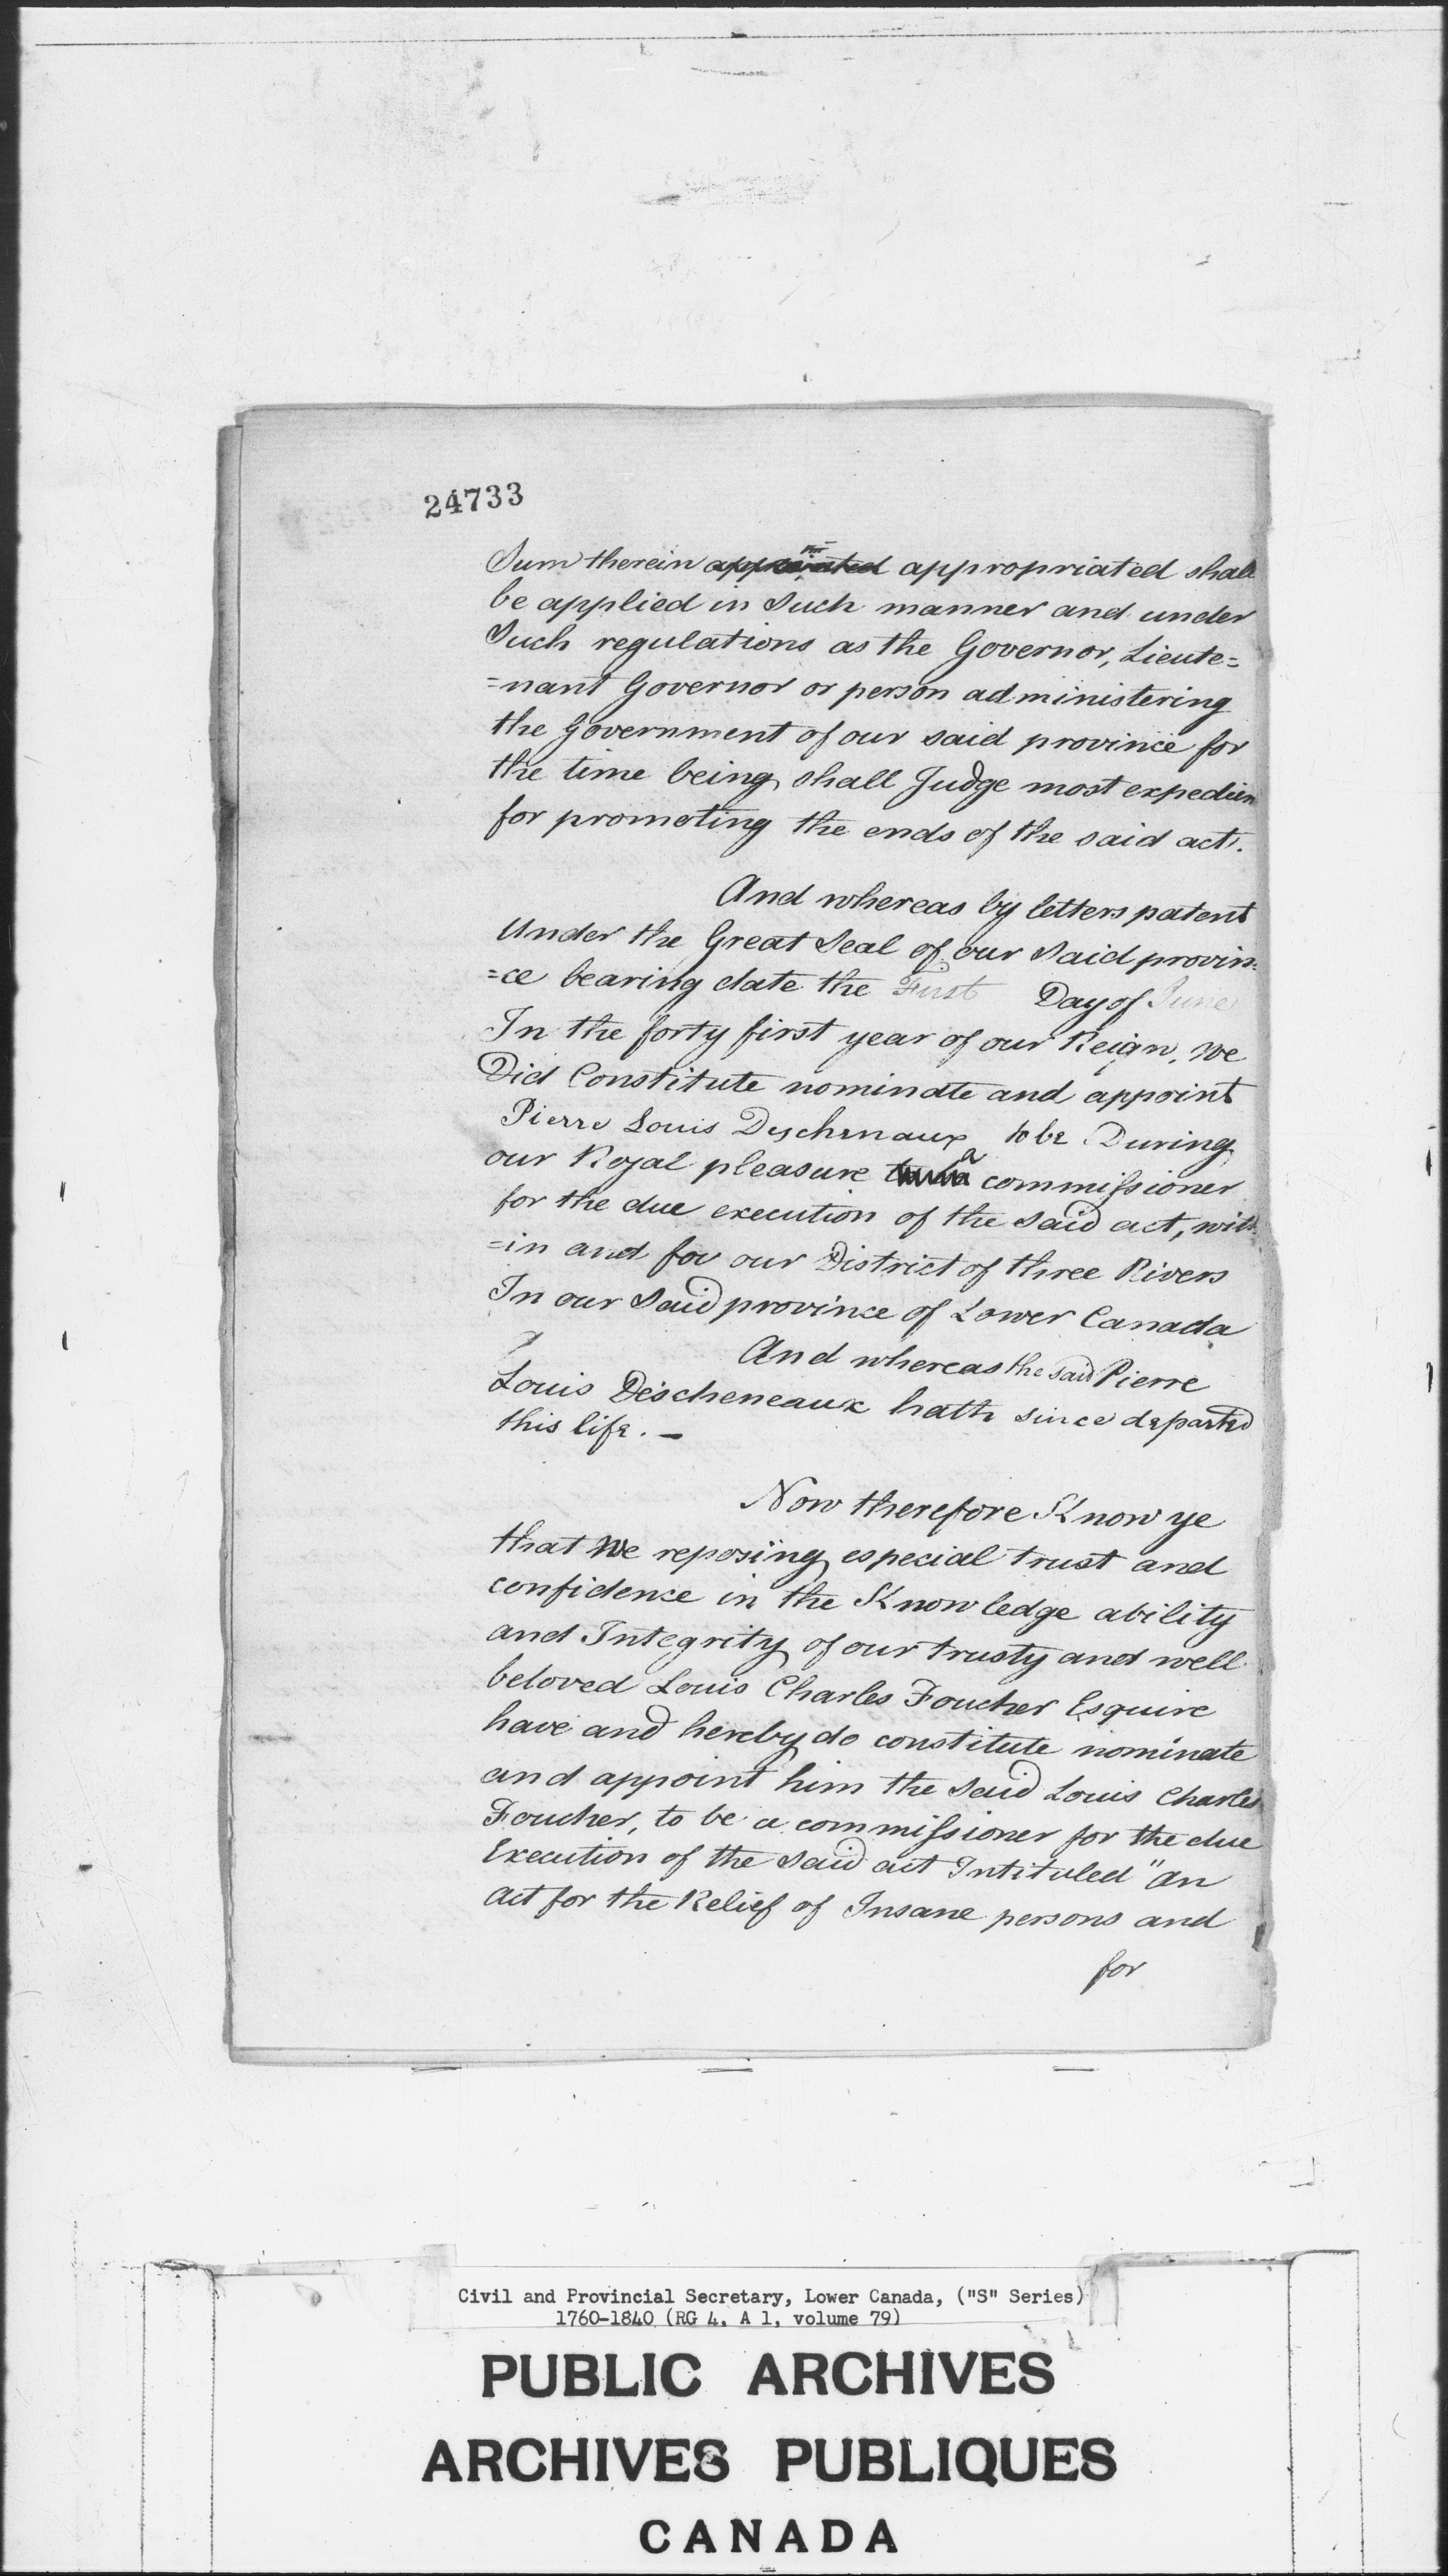 24733
Sum therein appointed appropriated shall
be applied in Such manner and under
Such regulations as the Governor, Lieute=
=nant Governor or person administering
the Government of our said province for
the time being shall Judge most expedien
for promoting the ends of the said act.
And whereas by letters patent
Under the Great Seal of our Said provin=
=ce bearing date the First Day of June
In the forty first year of our Reign, We
Did Constitute nominate and appoint
Pierre Louis Deschenaux to be During
our Royal pleasure a commissioner
for the due execution of the Said act, with
=in and for our District of three Rivers
In our Said province of Lower Canada
And whereas the said Pierre
Louis Descheneaux hath since departed
this life. —
Now therefore Know ye
that We reposing especial trust and
confidence in the Knowledge ability
and Integrity of our trusty and well
beloved Louis Charles Foucher Esquire
have and hereby do constitute nominate
and appoint him the Said Louis Charles
Foucher, to be a commissioner for the due
Execution of the Said act Intituled "An
Act for the Relief of Insane persons and
for
Civil and Provincial Secretary, Lower Canada, ("S" Series)
1760-1840 (RG 4, A 1, volume 79)
PUBLIC ARCHIVES
ARCHIVES PUBLIQUES
CANADA